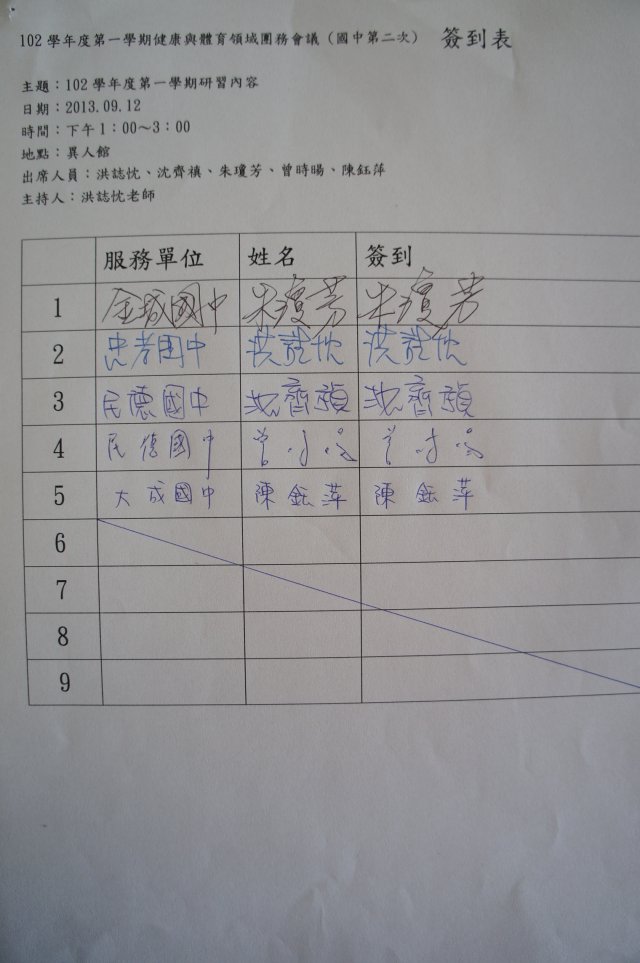 102學年度第一學期健康與體育領域團務會議（國中第二次） 簽到表
主題：102學年度第一學期研習內容
日期：2013.09.12
時間：下午1：00～3：00
地點：異人館
出席人員：洪誌忱、沈齊禛、朱瓊芳、曾時暘、陳鈺萍
主持人：洪誌忱老師
服務單位 姓名 簽到
1 金城國中 朱瓊芳 朱瓊芳
2 忠孝國中 洪誌忱 洪誌忱
3 民德國中 沈齊禛 沈齊禛
4 民德國中 曾時暘 曾時暘
5 大成國中 陳鈺萍 陳鈺萍
6
7
8
9